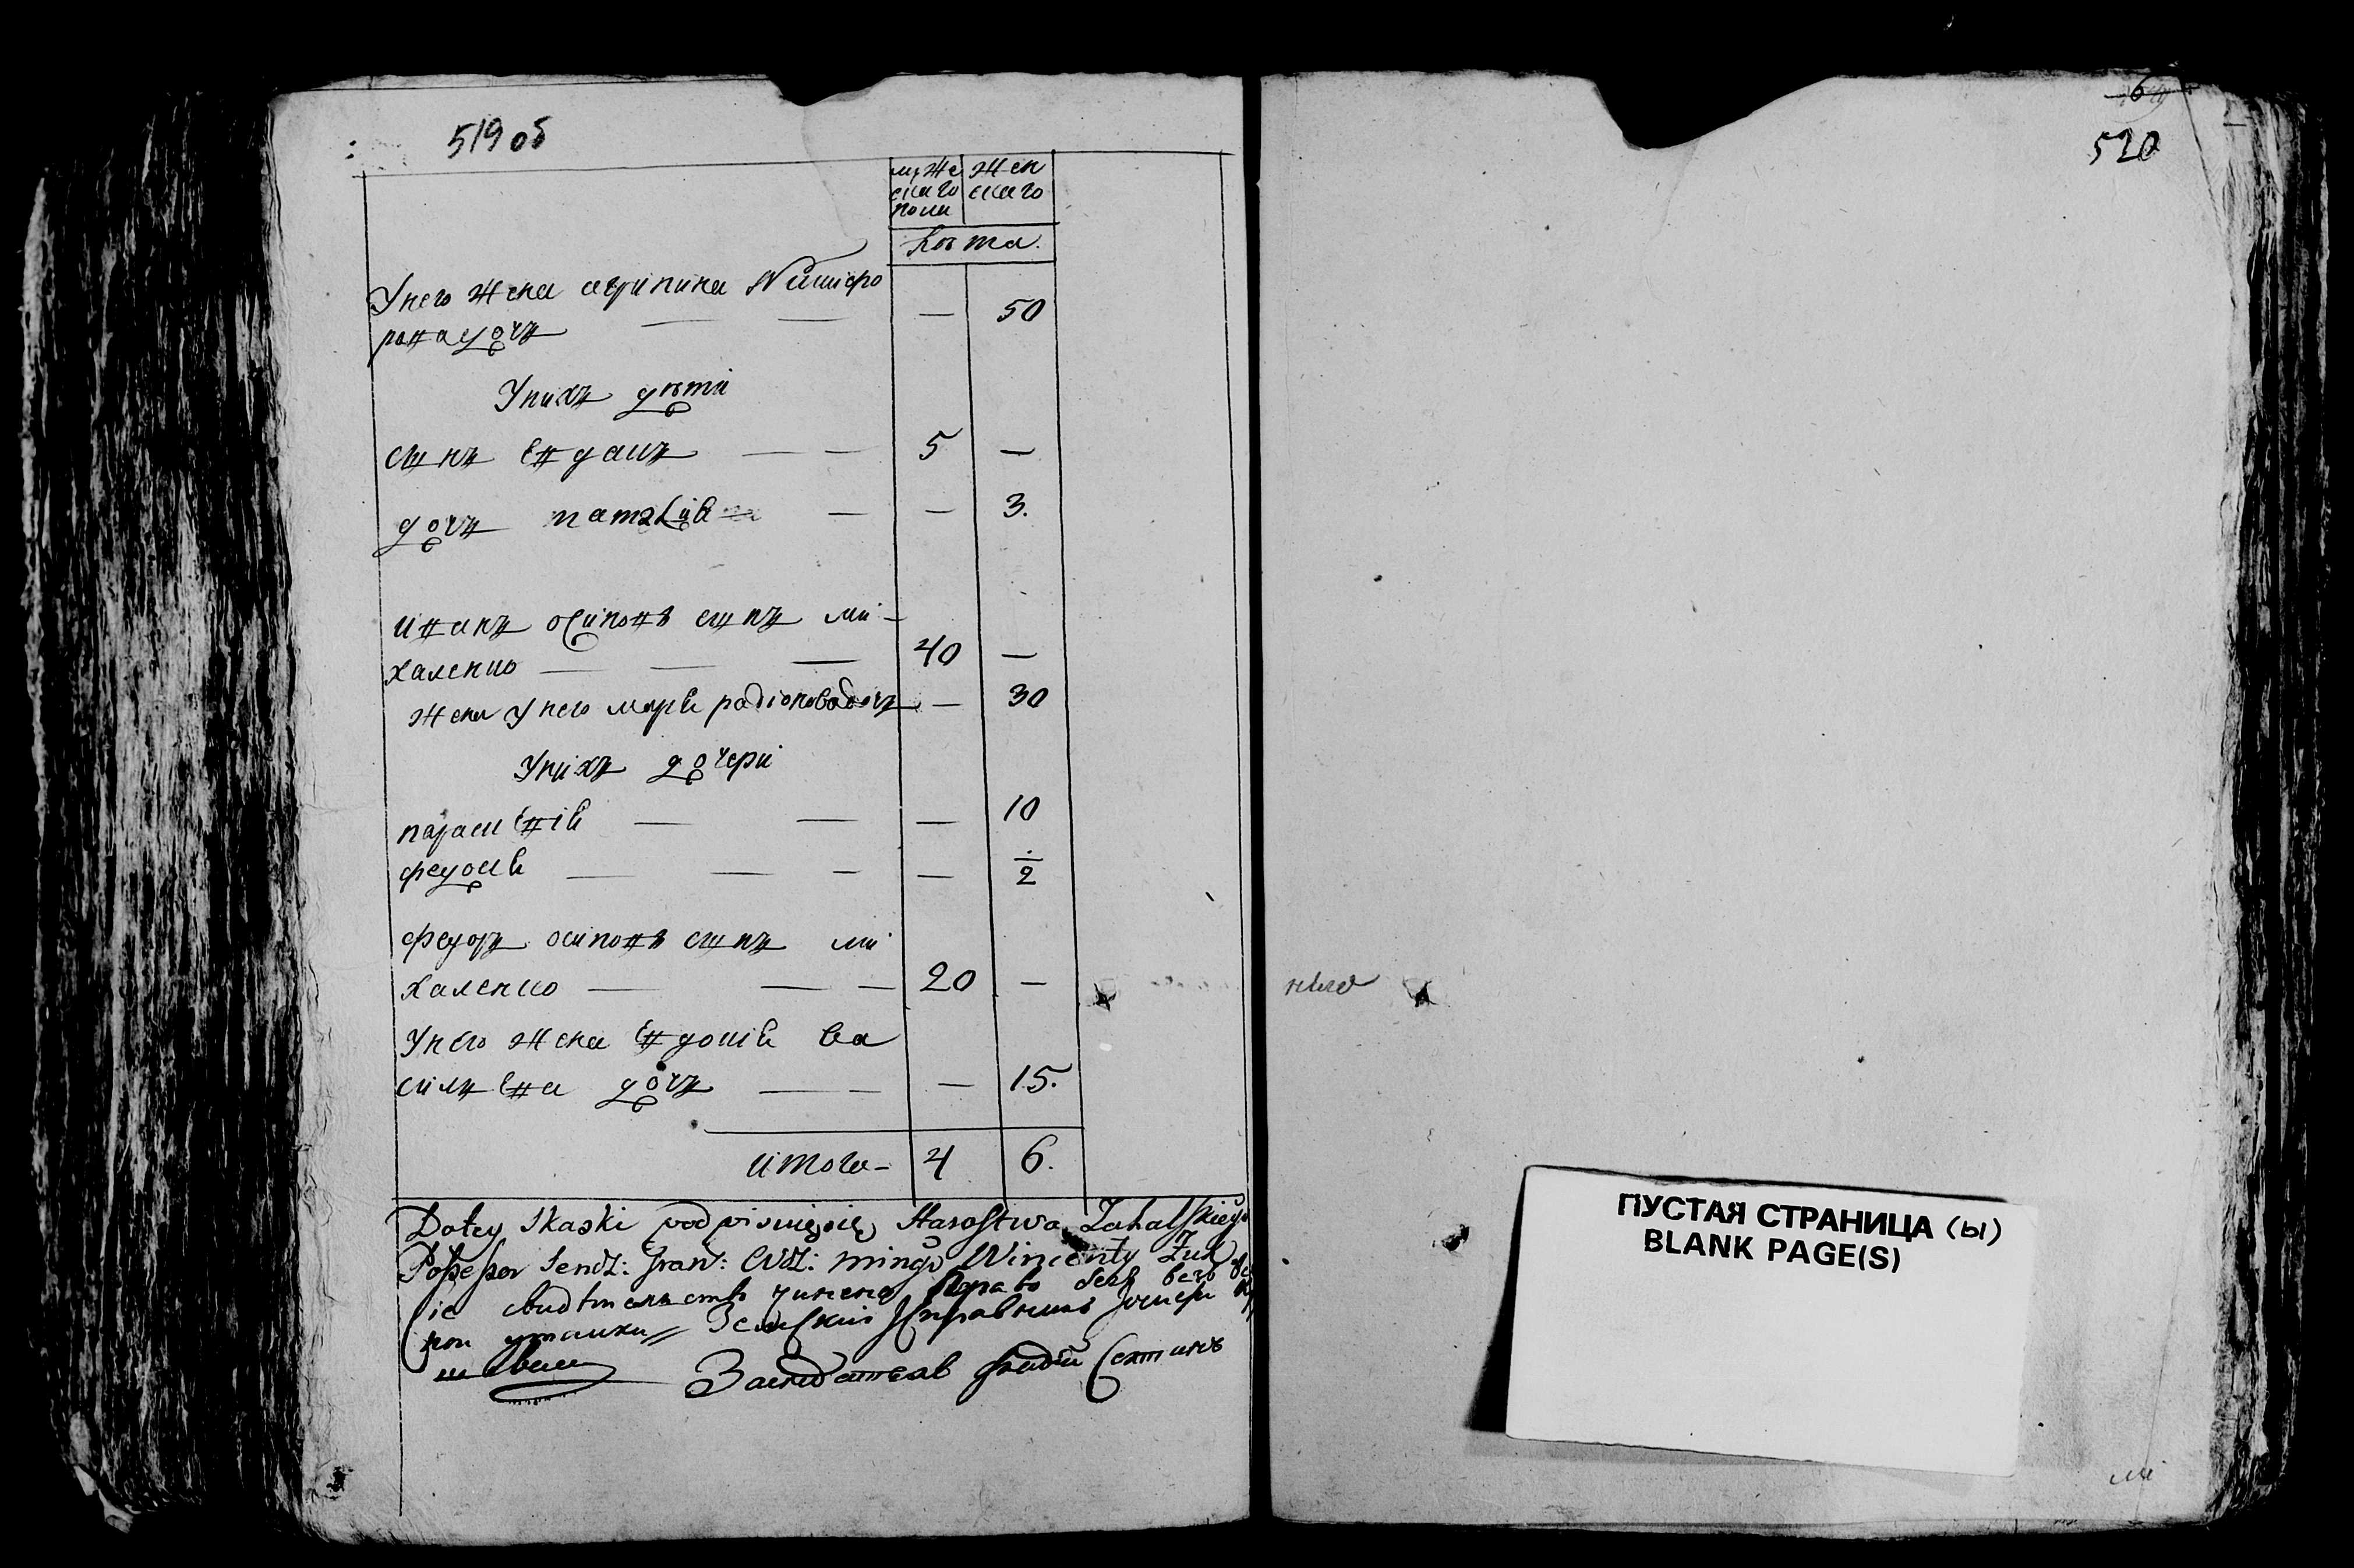 519 об
муже
скаго
пола
жен
скаго
лѣта.
У него жена агрипина Никифо
рова дочь — — — 50
У нихъ дѣти
сынъ Евдакъ — — 5 —
дочь татьяна — — 3.
иванъ осиповъ сынъ ми-
халенко — — — 40 —
жена у него маря радіонова дочь — 30
У нихъ дочери
параскевія — — — 10
федося — — — — 2
федоръ осиповъ сынъ ми
халенко — — — 20 —
У него жена Евдокія ва
сильева дочь — — — 15.
итого- 4 6.
Do tey Skaski podpisuię się Starostwa Zahalskiego
Possessor Sendz: Gran: Wdz: mings Wincenty Żuk
свидѣтельство учинено
утайки Земский Исправникъ
Заседатель
6
520
ПУСТАЯ СТРАНИЦА (Ы)
BLANK PAGE(S)